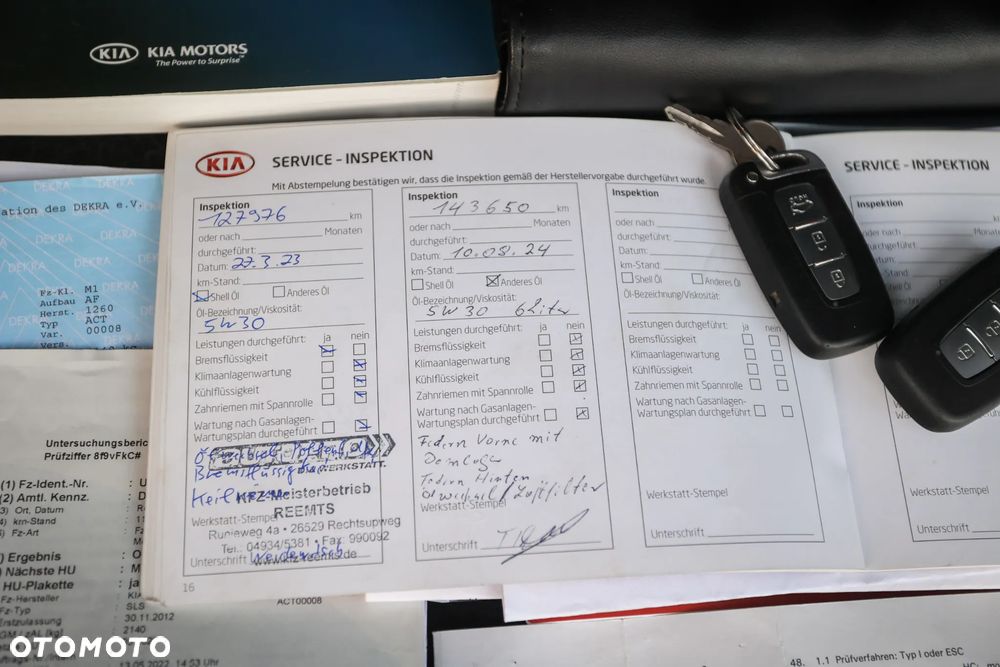 KIA KIA MOTORS
The Power to Surprise™
DEKRA DEKRA
ation des DEKRA e.V.
Fz-Kl. M1
Aufbau AF
Herst. 1260
Typ ACT
Var. 00008
Vers.
KIA SERVICE – INSPEKTION
Mit Abstempelung bestätigen wir, dass die Inspektion gemäß der Herstellervorgabe durchgeführt wurde.
Inspektion
127976 km
oder nach Monaten
durchgeführt:
Datum: 27.3.23
km-Stand:
Shell Öl Anderes Öl
Öl-Bezeichnung/Viskosität:
5W30
Leistungen durchgeführt: ja nein
Bremsflüssigkeit
Klimaanlagenwartung
Kühlflüssigkeit
Zahnriemen mit Spannrolle
Wartung nach Gasanlagen-
Wartungsplan durchgeführt
WERKSTATT.
KFZ-Meisterbetrieb
REEMTS
Werkstatt-Stempel
26529 Rechtsupweg
Tel. 04934/5381 • Fax: 990092
Unterschrift
16
Inspektion
143650 km
oder nach Monaten
durchgeführt:
Datum: 10.08.24
km-Stand:
Shell Öl Anderes Öl
Öl-Bezeichnung/Viskosität:
5W30 6 Liter
Leistungen durchgeführt: ja nein
Bremsflüssigkeit
Klimaanlagenwartung
Kühlflüssigkeit
Zahnriemen mit Spannrolle
Wartung nach Gasanlagen-
Wartungsplan durchgeführt
Federn Vorne mit
Domlager
Federn Hinten
Ölwechsel / Luftfilter
Werkstatt-Stempel
Unterschrift
Inspektion
oder nach
durchgeführt:
Datum:
km-Stand:
Shell Öl Anderes Öl
Öl-Bezeichnung/Viskosität:
Leistungen durchgeführt: ja nein
Bremsflüssigkeit
Klimaanlagenwartung
Kühlflüssigkeit
Zahnriemen mit Spannrolle
Wartung nach Gasanlagen-
Wartungsplan durchgeführt
Werkstatt-Stempel
Unterschrift
SERVICE – INSPEKTION
Inspektion
oder nach
durchgeführt:
Werkstatt-Stempel
Unterschrift
Untersuchungsberic
Prüfziffer 8f9vFkC#
(1) Fz-Ident.-Nr. : U
(2) Amtl. Kennz. : D
(3) Ort, Datum
(4) km-Stand
Fz-Art
Ergebnis
Nächste HU : M
HU-Plakette : ja
Fz-Hersteller : KIA
Fz-Typ : SLS
ACT00008
Erstzulassung : 30.11.2012
2140
13.05.2022 14:53 Uhr
48. 1.1 Prüfverfahren: Typ I oder ESC
OTOMOTO